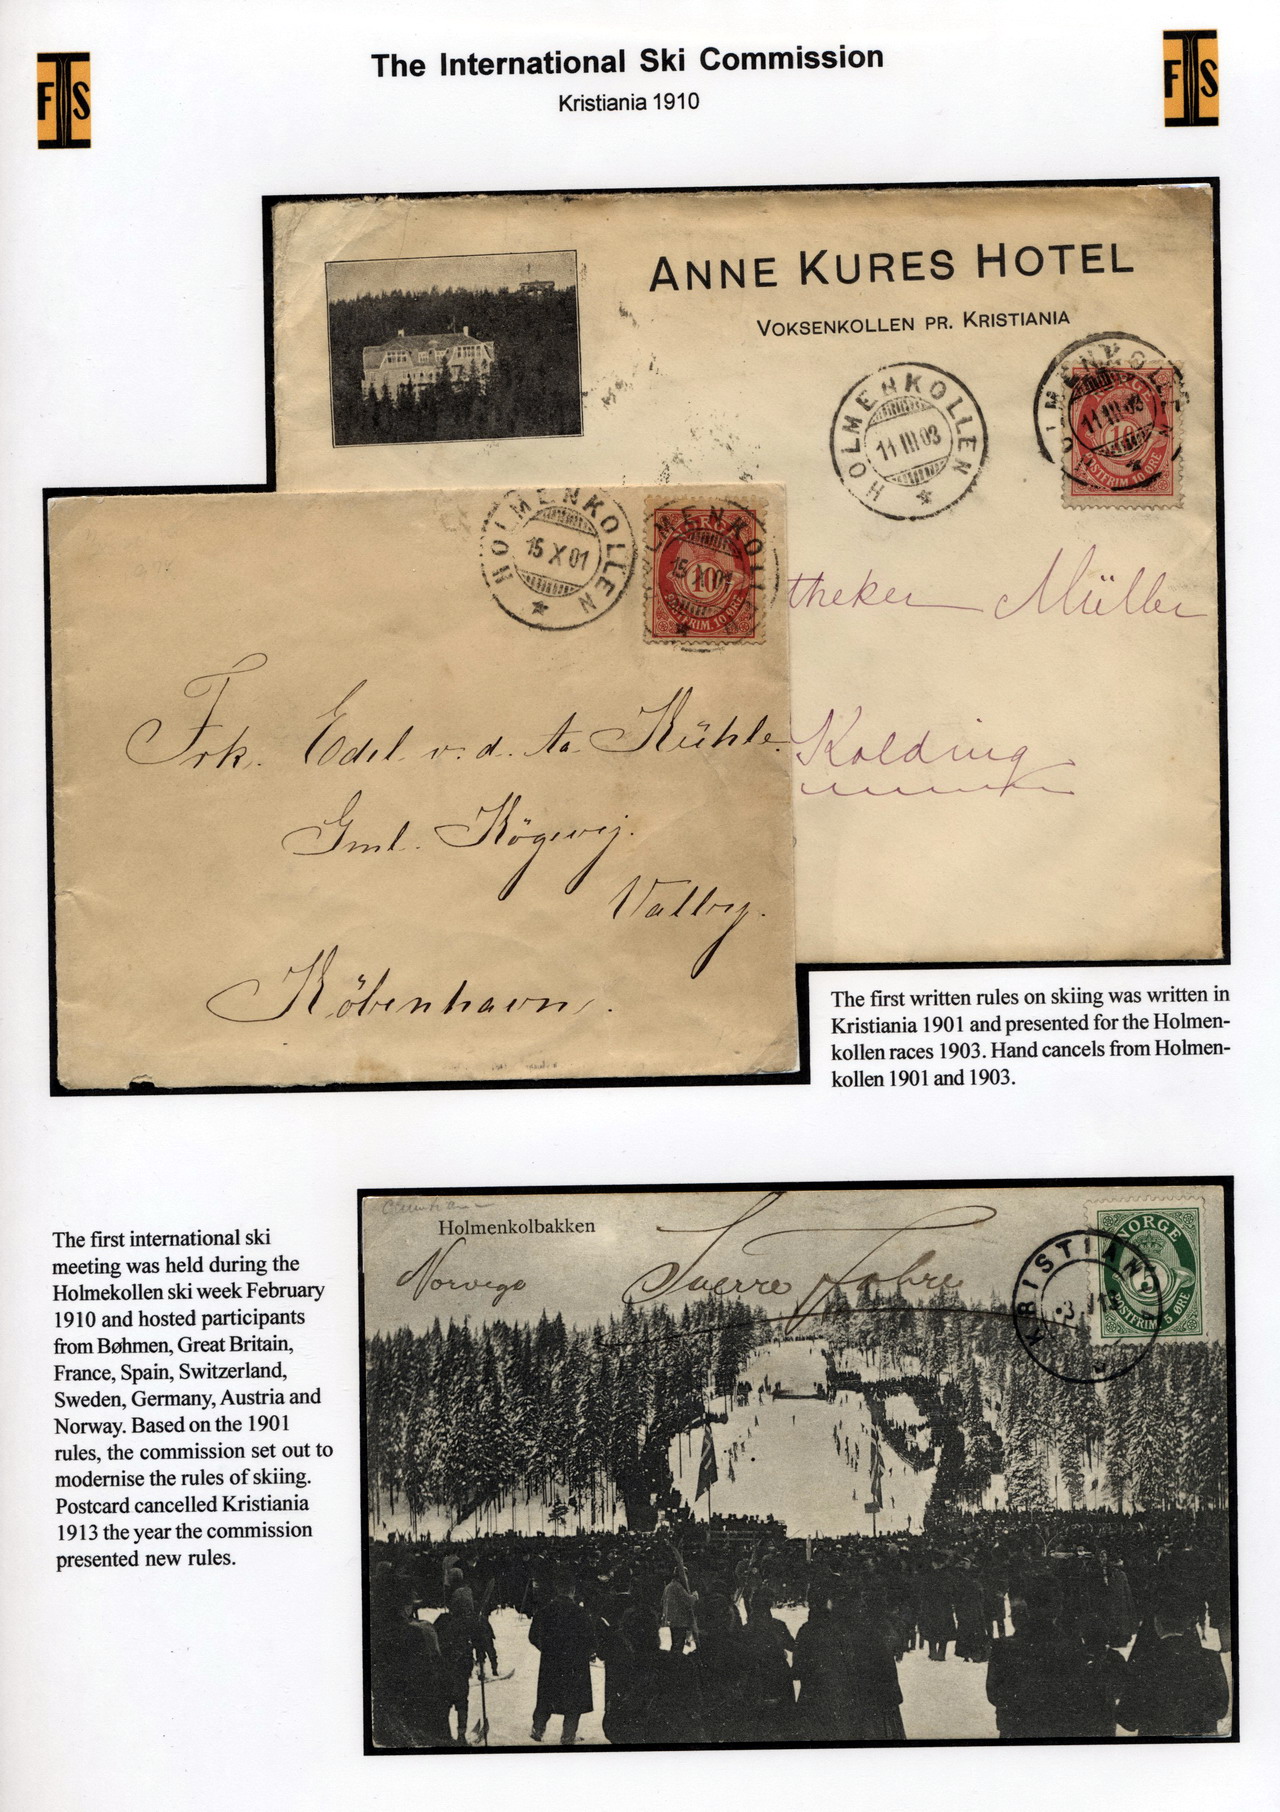 The International Ski Commission
Kristiania 1910
FIS
FIS
ANNE KURES HOTEL
VOKSENKOLLEN PR. KRISTIANIA
HOLMENKOLLEN
11 III 03
HOLMENKOLLEN
11 III 03
NORGE
10
POSTFRIM. 10 ØRE
theker Müller
Kolding
HOLMENKOLLEN
15 X 01
HOLMENKOLL
15 X 01
NORGE
10
POSTFRIM. 10 ØRE
Frk. Edel v. d. Aa Kühle.
Gml. Kögevej.
Valby.
Köbenhavn.
The first written rules on skiing was written in
Kristiania 1901 and presented for the Holmen-
kollen races 1903. Hand cancels from Holmen-
kollen 1901 and 1903.
The first international ski
meeting was held during the
Holmekollen ski week February
1910 and hosted participants
from Bøhmen, Great Britain,
France, Spain, Switzerland,
Sweden, Germany, Austria and
Norway. Based on the 1901
rules, the commission set out to
modernise the rules of skiing.
Postcard cancelled Kristiania
1913 the year the commission
presented new rules.
Holmenkolbakken
Norvege
Sverre
KRISTIAN
NORGE
5
POSTFRIM. 5 ØRE